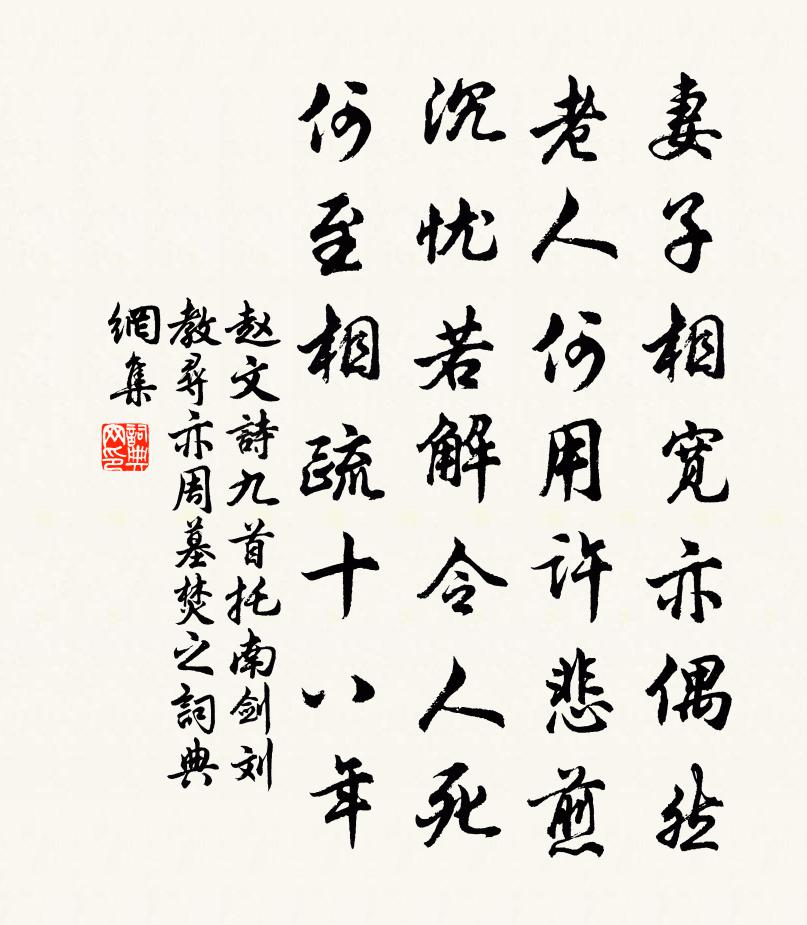 妻子相宽亦偶然
老人何用许悲煎
沉忧若解令人死
何至相疏十八年
赵文詩九首托南剑刘
教尋亦周墓焚之詞典
網集
詞典